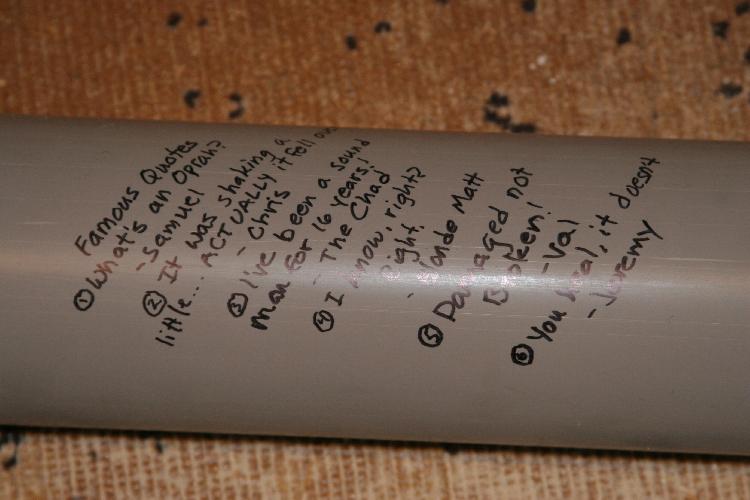 Famous Quotes
① What's an Oprah?
- Samuel
② It was shaking a
little... ACTUALLY it fell
- Chris
③ I've been a sound
man for 16 years!
- The Chad
④ I know, right?
right.
- Matt
⑤ Damaged not
Broken!
- Val
⑥ You heal, it doesn't
- Jeremy